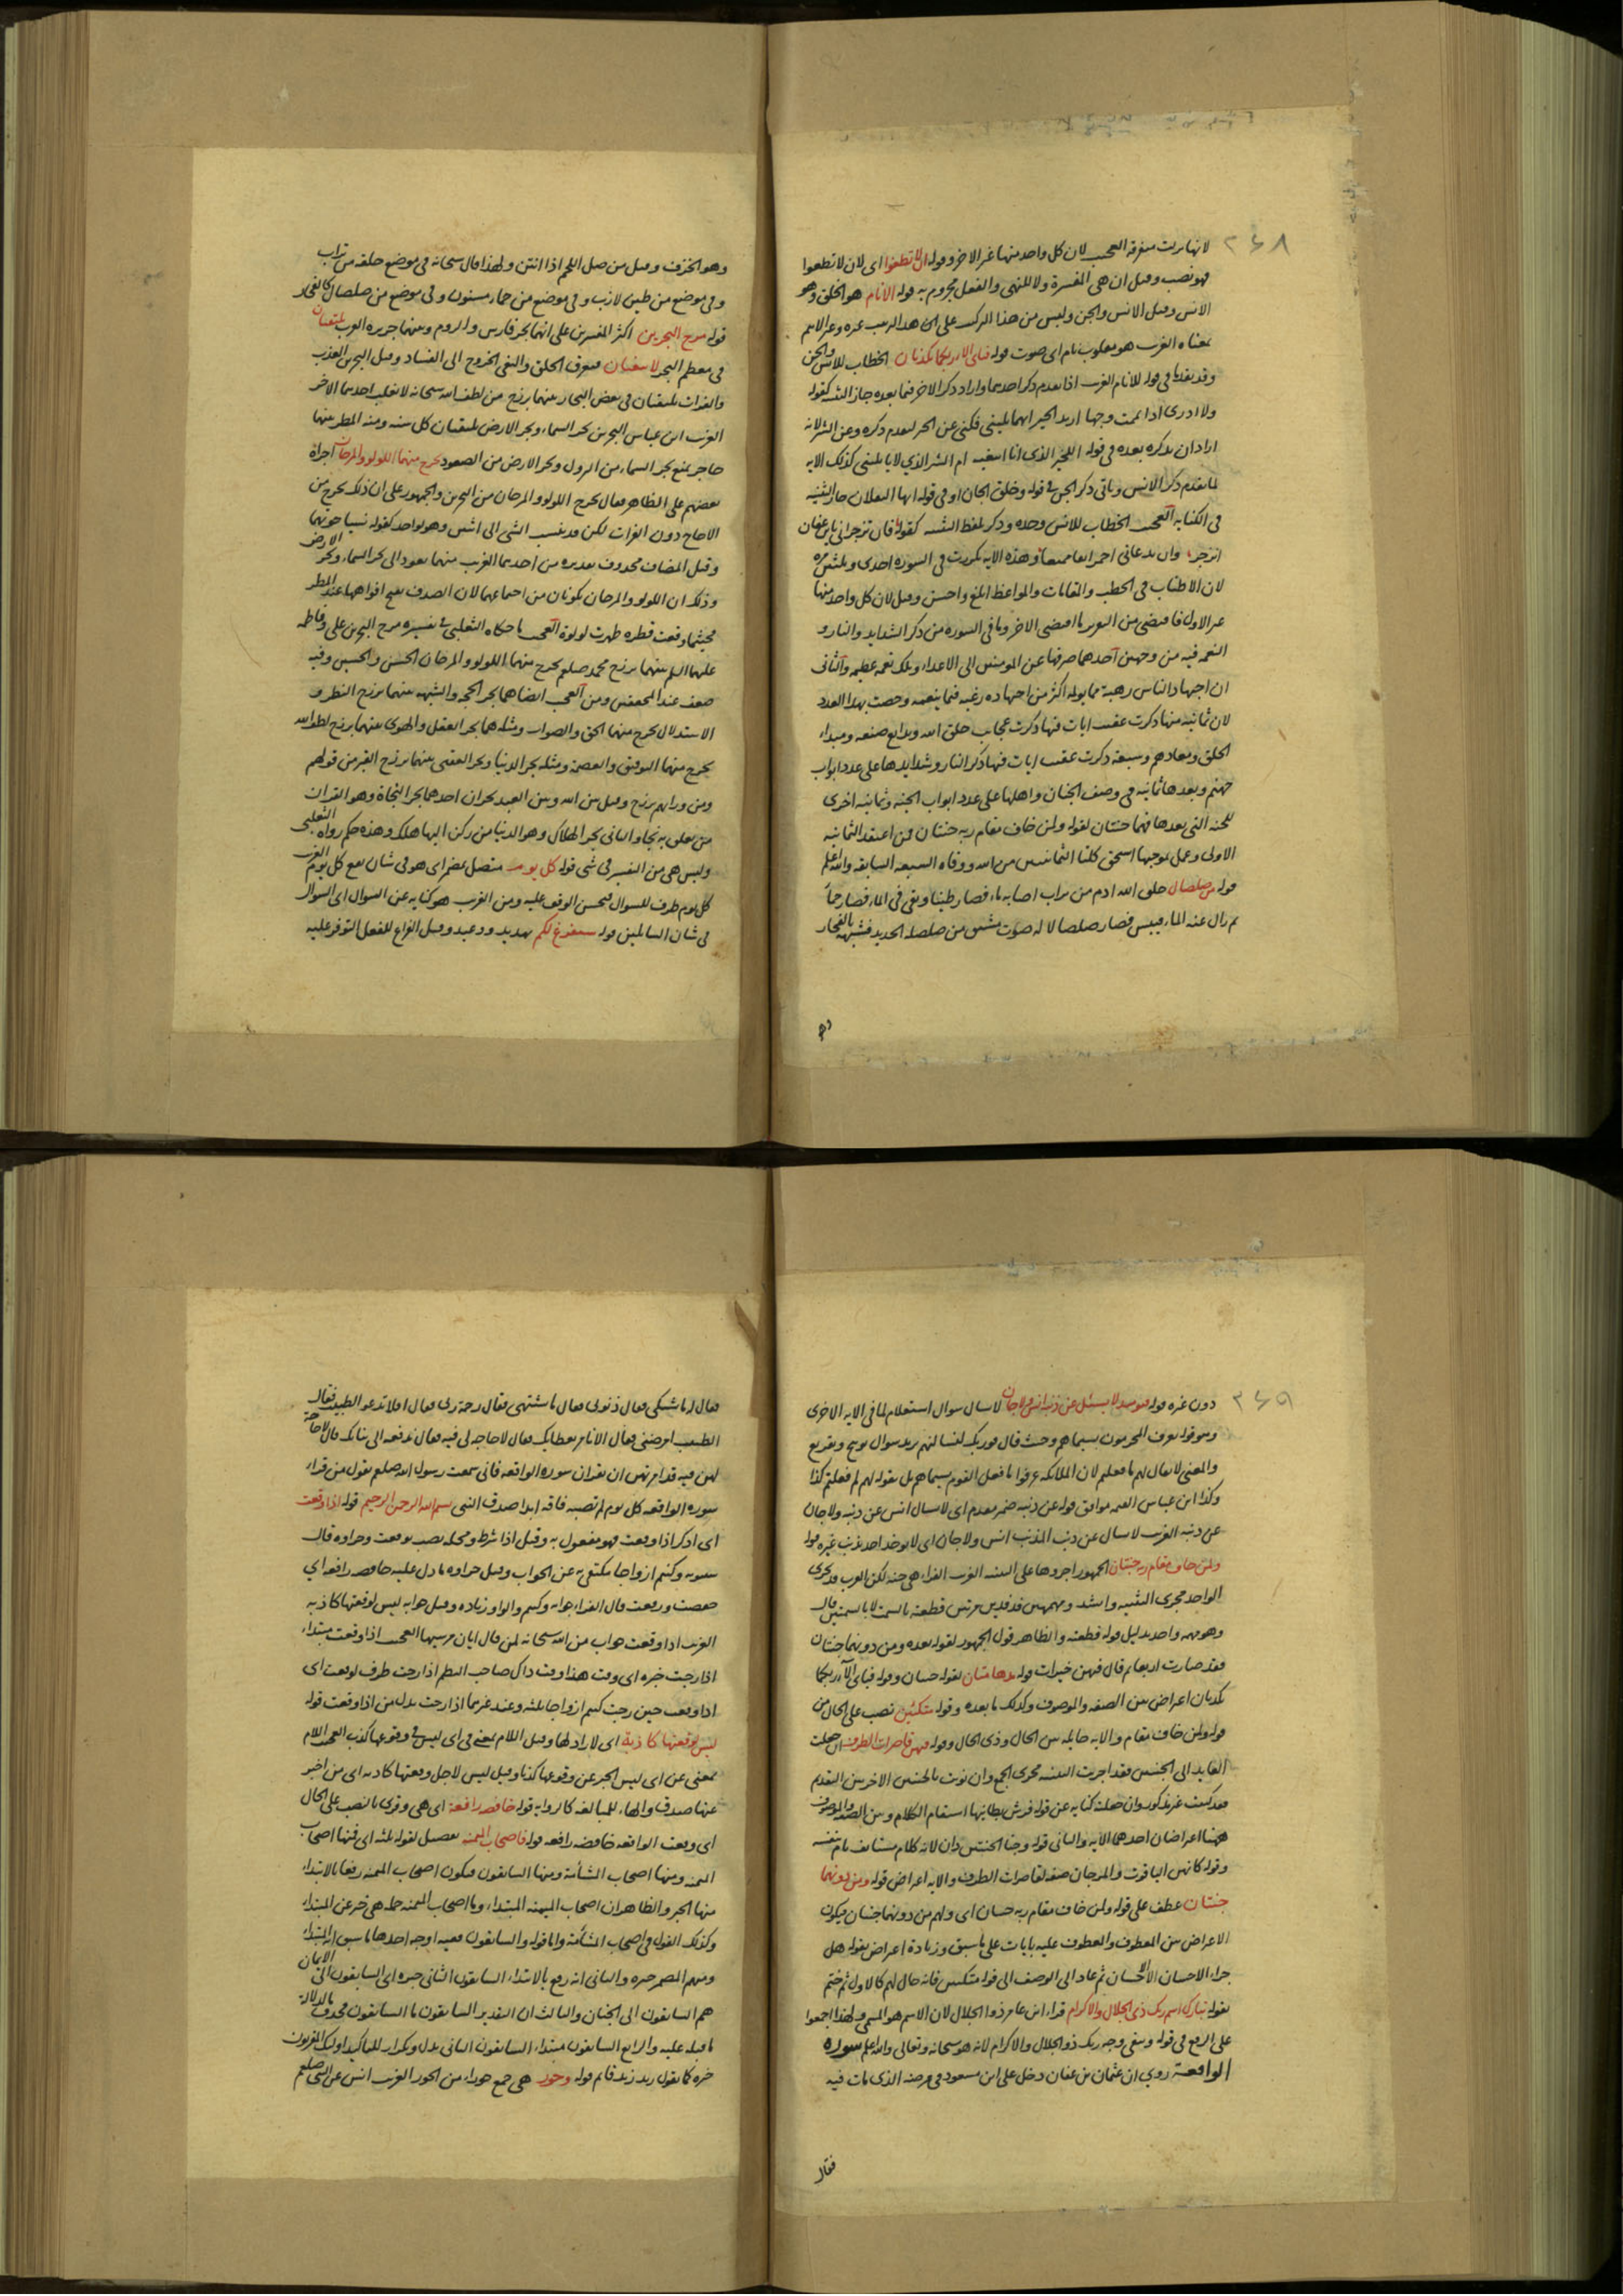 ٢٤٨
لانها مرت متفرقة العجيب لان كل واحد منها غير الاخر وقوله ان لا تطغوا اى لان لا تطغوا
فهو نصب وقيل ان هى المفسرة ولا للنهى والفعل مجزوم به قوله الانام هو الخلق وهو
الانس وقيل الانس والجن وليس من هذا التركيب على
معناه الغريب هو مقلوب نام اى صوت قوله فباى آلاء ربكما تكذبان الخطاب للانس والجن
وقد تقدما فى قوله للانام الغريب اذا تقدم ذكر احدهما واراد ذكر الاخر فيما بعده جاز التثنية كقوله
ولا ادرى اذا يممت وجها اريد الخير ايهما يلينى فكنى عن الخير لتقدم ذكره وعن الشر لانه
اراد ان يذكره بعده فى قوله االخير الذى انا ابتغيه ام الشر الذي لا ياتلينى كذلك الايه
لما تقدم ذكر الانس وياتى ذكر الجن فى قوله وخلق الجان او فى قوله ايها الثقلان جاز التثنية
فى الكناية العجيب الخطاب للانس وحده وذكر بلفظ التثنية كقوله فان تزجرانى يا ابن عفان
انزجر وان تدعانى احم انفا ممنعا وهذه الايه تكررت فى السوره احدى وثلثين مره
لان الاطناب فى الخطب والمقامات والمواعظ ابلغ واحسن وقيل لان كل واحد منها
غير الاول فاقتضى من التقرير ما اقتضى الاخر وما فى السوره من ذكر الشدايد والنار و
النعم فيه من وجهين احدهما صرفها عن المومنين الى الاعداء وتلك نعمة عظيمه والثانى
ان اجتهاد الناس رهبة مما يولم اكثر من اجتهاده رغبه فيما ينعمه وخصت بهذا العدد
لان ثمانيه منها ذكرت عقيب ايات فيها ذكرت عجايب خلق الله وبدايع صنعه ومبداء
الخلق ومعادهم وسبعة ذكرت عقيب ايات فيها ذكر النار وشدايدها على عدد ابواب
جهنم وبعدها ثمانيه فى وصف الجنان واهلها على عدد ابواب الجنه وثمانيه اخرى
للجنة التى بعدها فهما جنتان لقوله ولمن خاف مقام ربه جنتان فمن اعتقد الثمانيه
الاولى وعمل بموجبها استحق كلتا الثمانيتين من الله ووقاه السبعه السابقه والله اعلم
قوله من صلصال خلق الله ادم من تراب اصابه ماء فصار طينا وبقى فى الماء فصار حمأ
ثم زال عنه الماء فيبس فصار صلصالا له صوت مشتق من صلصلة الحديد فشبهه بالفخار
وهو
وهو الخزف وقيل من صل اللحم اذا انتن ولهذا قال سبحانه فى موضع خلقه من تراب
وفى موضع من طين لازب وفى موضع من حماء مسنون وفى موضع من صلصال كالفخار
قوله مرج البحرين اكثر المفسرين على انهما بحر فارس والروم وبينهما جزيرة العرب يلتقيان
فى معظم البحر لا يبغيان فيغرق الخلق والبغى الخروج الى الفساد وقيل البحرين العذب
والفرات يلتقيان فى بعض البحار بينهما برزخ من لطف الله سبحانه لا يغلب احدهما الاخر
الغريب ابن عباس البحرين بحر السماء وبحر الارض يلتقيان كل سنه ومنه المطر بينهما
حاجز يمنع بحر السماء من النزول وبحر الارض من الصعود يخرج منهما اللولو والمرجان اجراه
بعضهم على الظاهر فقال يخرج اللولو والمرجان من البحرين والجمهور على ان ذلك يخرج من
الاجاج دون الفرات لكن قد ينسب الشى الى اثنين وهو لواحد كقوله نسيا حوتهما
وقيل المضاف محذوف تقديره من احدهما الغريب منهما يعود الى بحر السماء وبحر الارض
وذلك ان اللولو والمرجان يكونان من اجتماعهما لان الصدف تفتح افواهها عند المطر
فحيثما وقعت قطره ظهرت لولوة العجيب ما حكاه الثعلبى فى تفسيره مرج البحرين على وفاطمة
عليهما السلم بينهما برزخ محمد صلعم يخرج منهما اللولو والمرجان الحسن والحسين وفيه
ضعف عند المحققين ومن العجيب ايضا هما بحر الحجه والشبهه بينهما برزخ النظر و
الاستدلال يخرج منهما الحق والصواب ومثله هما بحر العقل والهوى بينهما برزخ لطف الله
يخرج منهما التوفيق والعصمة ومثله بحر الدنيا وبحر العقبى بينهما برزخ القبر من قولهم
ومن ورايهم برزخ وقيل بين الله وبين العبد بحران احدهما بحر النجاة وهو القران
من تعلق به نجا والثانى بحر الهلاك وهو الدنيا من ركن اليها هلك وهذه حكم رواه الثعلبى
وليس هى من التفسير فى شى قوله كل يوم متصل بمضمر اى هو فى شان يقع كل يوم الغريب
كل يوم ظرف للسوال فيحسن الوقف عليه ومن الغريب هو كناية عن السوال اى السوال
فى شان السايلين قوله سنفرغ لكم تهديد ووعيد وقيل الفراغ للفعل التوفر عليه
٢٤٩
دون غيره قوله فيومئذ لا يسئل عن ذنبه انس ولا جان لا يسال سوال استعلام لما فى الايه الاخرى
وهو قوله يعرف المجرمون بسيماهم وحيث قال فوربك لنسالنهم يريد سوال توبيخ وتقريع
والمعنى لا يقال لهم ما فعلتم لان الملائكه عرفوا ما فعل القوم بسيماهم بل يقوله لهم لم فعلتم كذا
وكذا ابن عباس قوله عن ذنبه ضمير مقدم اى لا يسال انس عن ذنبه ولا جان
عن ذنبه الغريب لا يسال عن ذنب المذنب انس ولا جان اى لا يوخذ احد بذنب غيره قوله
ولمن خاف مقام ربه جنتان الجمهور اجروها على التثنية الغريب الفراء هى جنه لكن العرب قد تجرى
الواحد مجرى التثنيه وانشد ومهمهين قذفين مرتين قطعته بالسمت لا بالسمتين قال
وهو مهمه واحد بدليل قوله قطعته والظاهر قول الجمهور لقوله بعده ومن دونهما جنتان
فقد صارت اربعا ثم قال فيهن خيرات قوله مدهامتان لقوله حسان وقوله فباى آلاء ربكما
تكذبان اعتراض بين الصفه والموصوف وكذلك ما بعده وقوله متكئين نصب على الحال من
قوله ولمن خاف مقام والايه حايله بين الحال وذى الحال وقوله فيهن قاصرات الطرف ان جعلت
العايد الى الجنتين فقد اجريت التثنيه مجرى الجمع وان نويت بالجنتين الاخريين التقديم
فقد كنيت غير مذكور وان جعلته كناية عن قوله فرش بطاينها استقام الكلام وبين الصفة والموصوف
ههنا اعتراضان احدهما الايه والثانى قوله وجنا الجنتين دان لانه كلام مستانف تام بنفسه
وقوله كانهن الياقوت والمرجان صفة لقاصرات الطرف والايه اعتراض قوله ومن دونهما
جنتان عطف على قوله ولمن خاف مقام ربه جنتان اى ولهم من دونهما جنتان فيكون
الاعتراض بين المعطوف والمعطوف عليه بايات على ما سبق وزيادة اعتراض بقوله هل
جزاء الاحسان الا الاحسان ثم عاد الى الوصف الى قوله متكئين فانه حال لهم كالاول ثم ختم
بقوله تبارك اسم ربك ذى الجلال والاكرام قراء ابن عامر ذوا الجلال لان الاسم هو المسمى ولهذا اجمعوا
على الرفع فى قوله ويبقى وجه ربك ذو الجلال والاكرام لانه هو سبحانه وتعالى والله اعلم سوره
الواقعة روي ان عثمان بن عفان دخل على ابن مسعود فى مرضه الذى مات فيه
فقال
فقال له ما تشتكى فقال ذنوبى فقال ما تشتهى فقال رحمة ربى فقال افلا تدعو الطبيب فقال
الطبيب امرضنى فقال الا نامر بعطايك فقال لا حاجه لى فيه فقال ندفعه الى بناتك قال لا حاجة
لهن فيه قد امرتهن ان يقران سوره الواقعه فانى سمعت رسول الله صلعم يقول من قراء
سوره الواقعه كل يوم لم تصبه فاقه ابدا صدق النبى بسم الله الرحمن الرحيم قوله اذا وقعت
اى اذكر اذا وقعت فهو مفعول به وقيل اذا شرط ومحله نصب بوقعت وجوابه قال
سيبويه وكنتم ازواجا يكتفى به عن الجواب وقيل جوابه ما دل عليه خافضه رافعه اي
خفضت ورفعت قال الفراء جوابه وكنتم والواو زياده وقيل جوابه ليس لوقعتها كاذبه
الغريب اذا وقعت جواب من الله سبحانه لمن قال ايان مرسيها العجيب اذا وقعت مبتداء
اذا رجت خبره اى وقت هذا وقت ذاك صاحب النظم اذا رجت ظرف لوقعت اى
اذا وقعت حين رجت كنتم ازواجا ثلثه وعند غيرهما اذا رجت بدل من اذا وقعت قوله
ليس لوقعتها كاذبة اى لا راد لها وقيل اللام بمعنى فى اى ليس فى وقوعها كذب العجيب اللام
بمعنى عن اى ليس الخبر عن وقوعها كذبا وقيل ليس لاجل وقعتها كاذبه اى من اخبر
عنها صدق والهاء للمبالغه كالراويه قوله خافضه رافعه اى هى وقرى بالنصب على الحال
اى وقعت الواقعه خافضه رافعه قوله فاصحاب الميمنه تفصيل لقوله ثلثه اى فمنها اصحاب
الميمنه ومنها اصحاب الشأمة ومنها السابقون فيكون اصحاب الميمنه رفعا بالابتداء
منها الخبر والظاهر ان اصحاب الميمنه المبتداء وما اصحاب الميمنه جمله هى خبر عن المبتداء
وكذلك القول فى اصحاب المشأمة واما قوله والسابقون ففيه اوجه احدها ما سبق انه المبتداء
ومنهم المضمر خبره والثانى انه رفع بالابتداء السابقون الثانى خبره اى السابقون الى الايمان
هم السابقون الى الجنان والثالث ان التقدير السابقون ما السابقون فحذف ما لدلالة
ما قبله عليه والرابع السابقون مبتداء السابقون الثانى بدل وتكرار للتاكيد اولئك المقربون
خبره كما تقول زيد زيد قايم قوله وحور هى جمع حوراء من الحور الغريب انس عن النبى صلعم